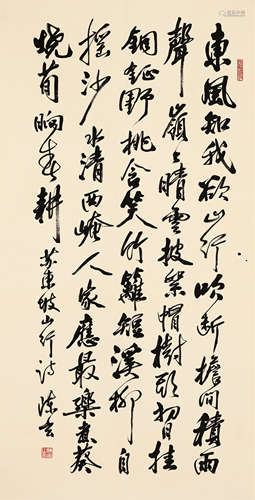 東風知我欲山行吹斷檐间積雨
聲嶺上晴雲披絮帽樹頭初日挂
銅鉦野桃含笑竹籬短溪柳自
摇沙水清西崦人家應最樂煮葵
燒筍餉春耕 蘇東坡山行詩 陈云